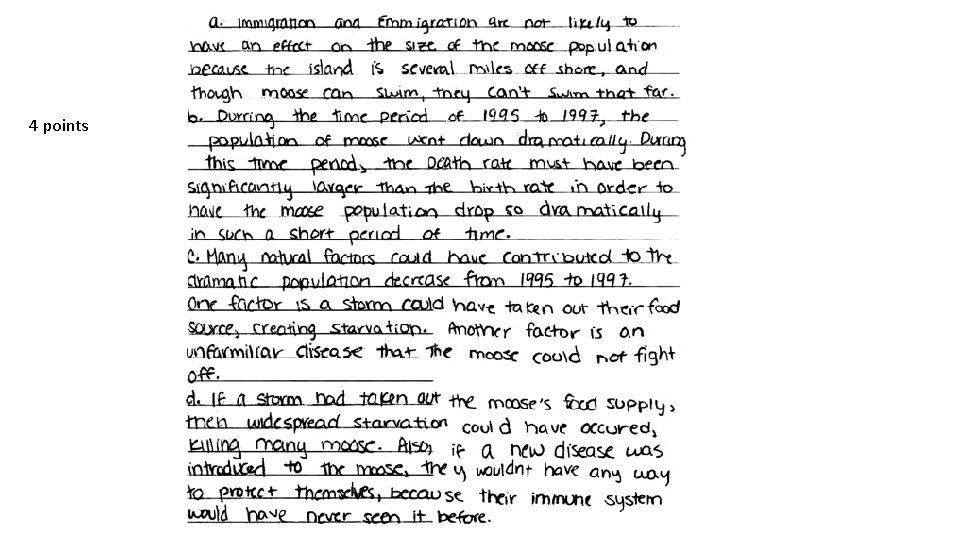 a. Immigration and Emmigration are not likely to
have an effect on the size of the moose population
because the island is several miles off shore, and
though moose can swim, they can't swim that far.
b. Durring the time period of 1995 to 1997, the
4 points
population of moose went down dramatically. During
this time period, the Death rate must have been
significantly larger than the birth rate in order to
have the moose population drop so dramatically
in such a short period of time.
c. Many natural factors could have contributed to the
dramatic population decrease from 1995 to 1997.
One factor is a storm could have taken out their food
source, creating starvation. Another factor is an
unfarmiliar disease that the moose could not fight
off.
d. If a storm had taken out the moose's food supply,
then widespread starvation could have occured,
killing many moose. Also, if a new disease was
introduced to the moose, they wouldnt have any way
to protect themselves, because their immune system
would have never seen it before.